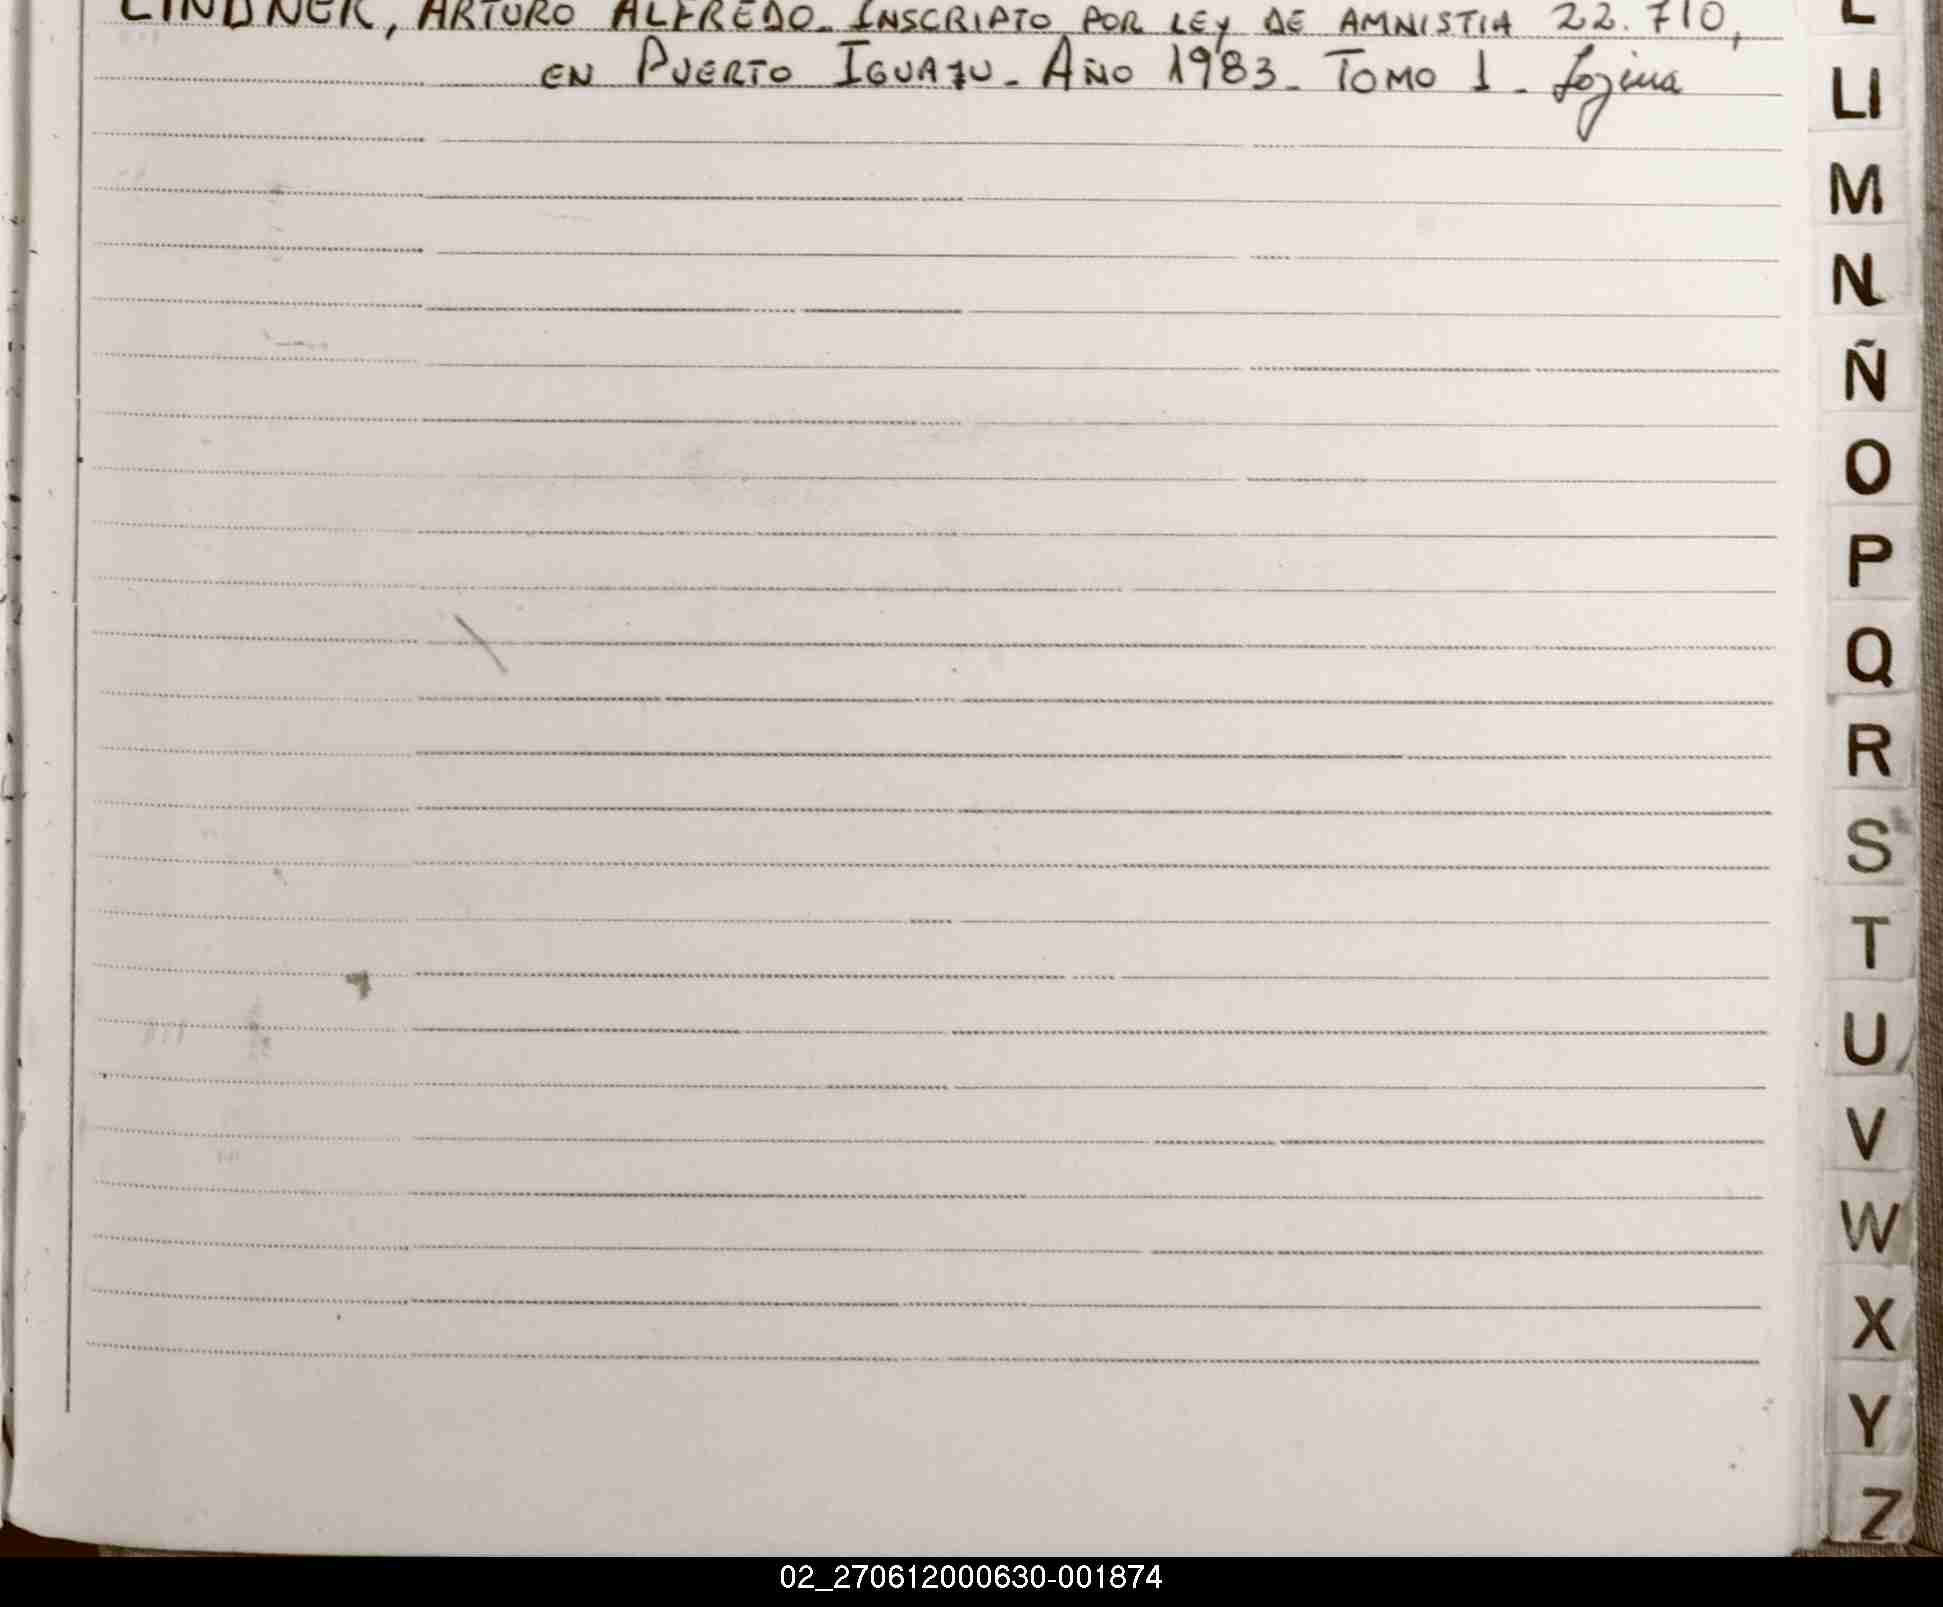 LINDNER, ARTURO ALFREDO. INSCRIPTO POR LEY DE AMNISTIA 22.710,
EN PUERTO IGUAZU - AÑO 1983 - TOMO 1 -
L
LI
M
N
Ñ
O
P
Q
R
S
T
U
V
W
X
Y
Z
02_270612000630-001874